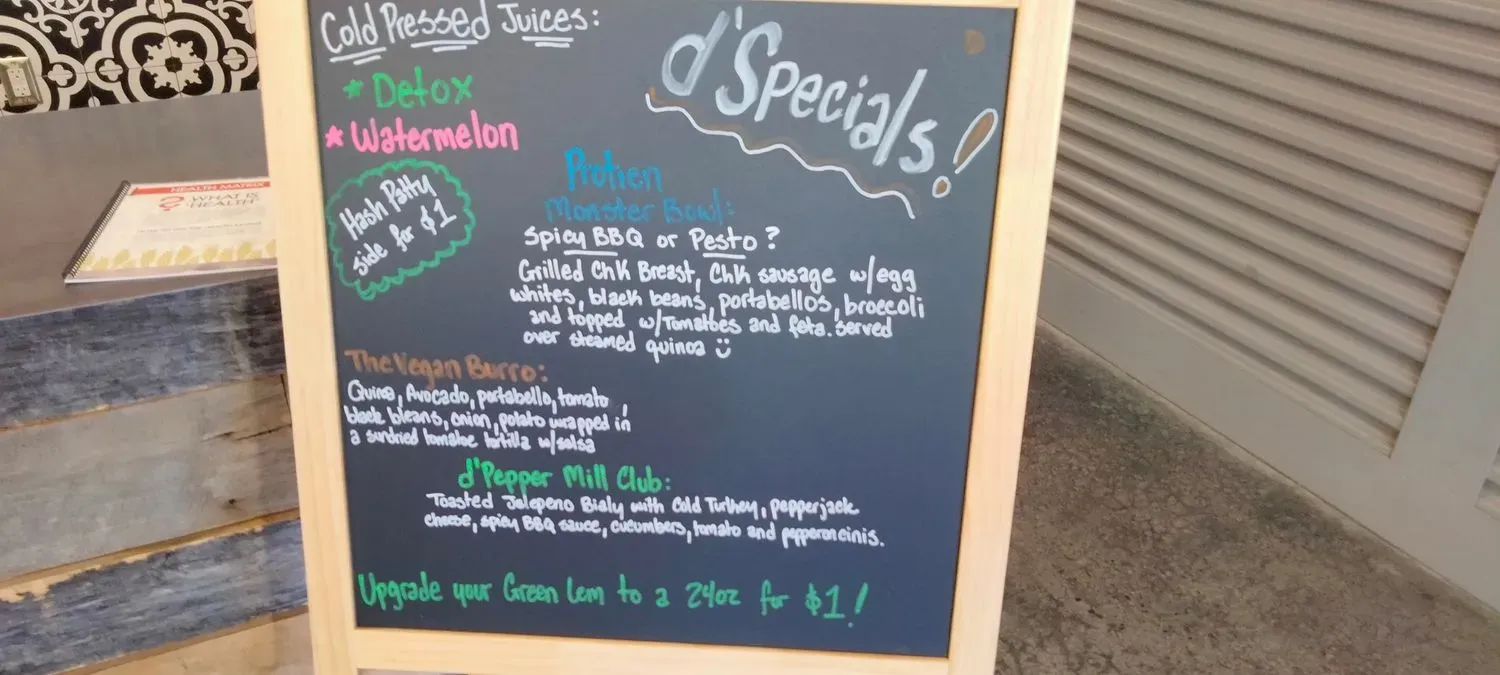 Cold Pressed Juices:
* Detox
* Watermelon
Hash Patty
side for $1
d'Specials!
Protien
Monster Bowl:
Spicy BBQ or Pesto?
Grilled Chk Breast, Chk sausage w/egg
whites, black beans, portabellos, broccoli
and topped w/Tomatoes and feta. Served
over steamed quinoa
The Vegan Burro:
Quinoa, Avocado, portabello, tomato,
black bleans, onion, potato wrapped in
a sundried tomatoe tortilla w/salsa
d'Pepper Mill Club:
Toasted Jalepeno Bialy with Cold Turkey, pepperjack
cheese, spicy BBQ sauce, cucumbers, tomato and pepperoncinis.
Upgrade your Green Lem to a 24oz for $1!
HEALTH MATRIX
WHAT IS
HEALTH?